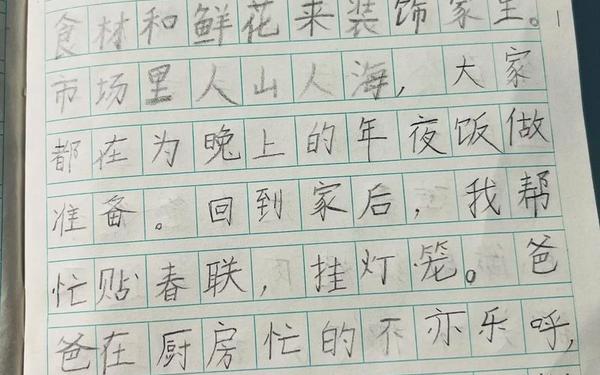 食材和鲜花来装饰家里。
市场里人山人海，大家
都在为晚上的年夜饭做
准备。回到家后，我帮
忙贴春联，挂灯笼。爸
爸在厨房忙的不亦乐呼，